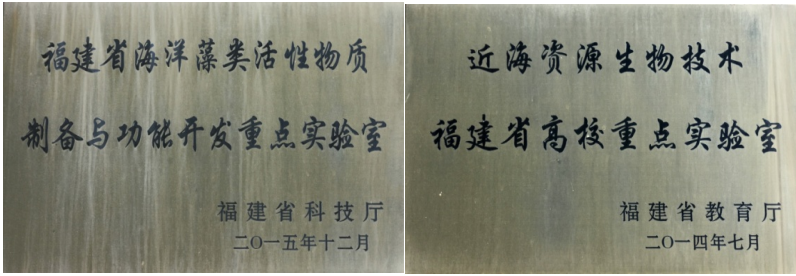 福建省海洋藻类活性物质
制备与功能开发重点实验室
福建省科技厅
二〇一五年十二月
近海资源生物技术
福建省高校重点实验室
福建省教育厅
二〇一四年七月